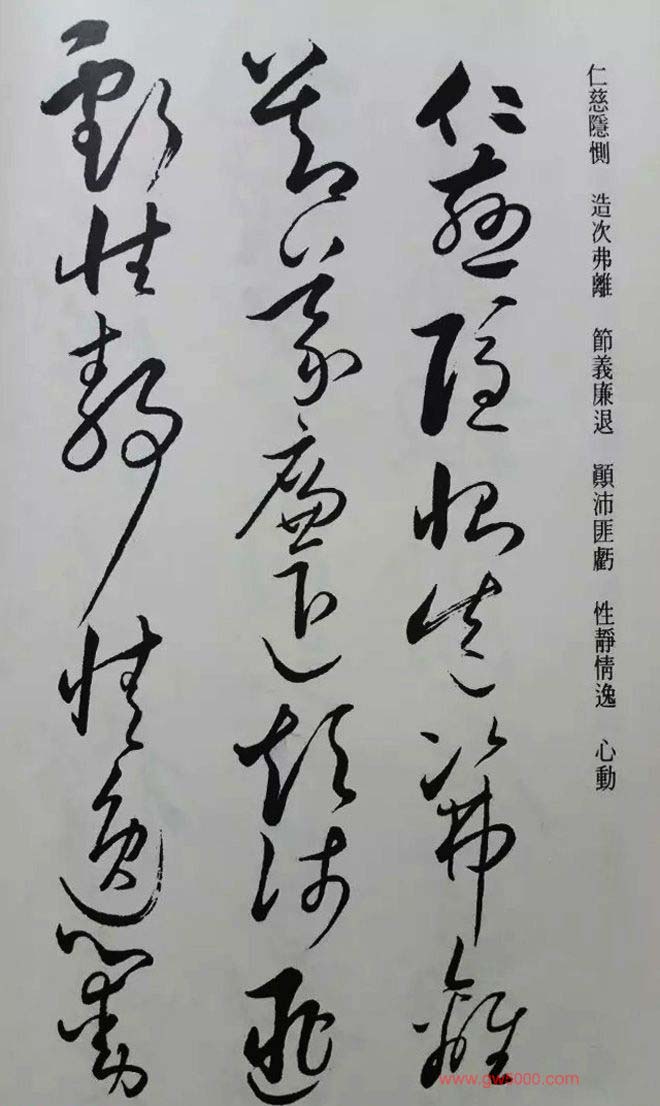 仁慈隱惻 造次弗離 節義廉退 顚沛匪虧 性靜情逸 心動
仁慈隱惻造次弗離
節義廉退顛沛匪
虧性靜情逸心動
www.gw5000.com